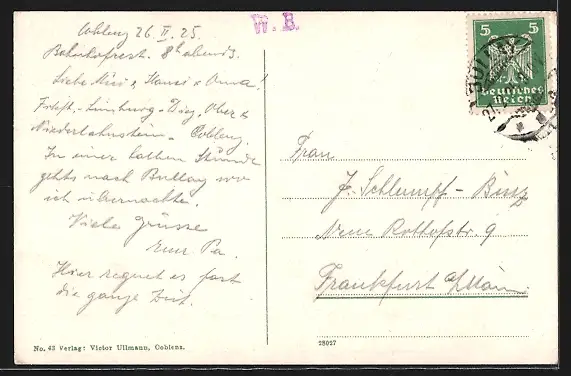 Coblenz 26.II.25.
Bahnhofrest. 8h abends.
Liebe Mizi, Hansi & Oma!
Frkft.-Limburg-Diez, Ober &
Niederlahnstein - Coblenz.
In einer halben Stunde
gehts nach Bullay wo
ich übernachte.
Viele Grüsse
Euer Pa.
Hier regnet es fast
die ganze Zeit.
No. 43 Verlag: Victor Ullmann, Coblenz.
W. B.
5 5
Deutsches
Reich
Frau
J. Schlumpf-Binz
Neue Rothofstr 9
Frankfurt a/Main
28027